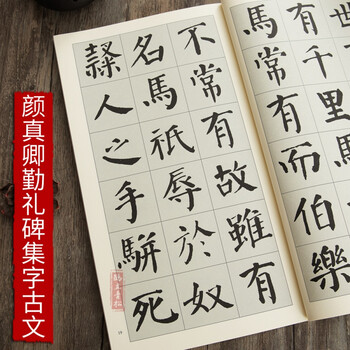 颜真卿勤礼碑集字古文
世有
千里
馬常有而伯樂
不常有故雖有
名馬祇辱於奴
隸人之手駢死